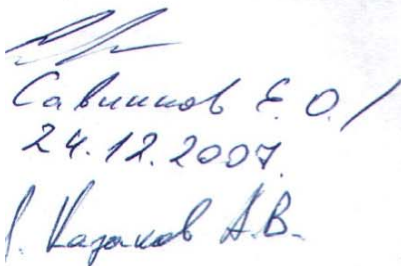 Савинков Е.О./
24.12.2007.
/. Казаков А.В.